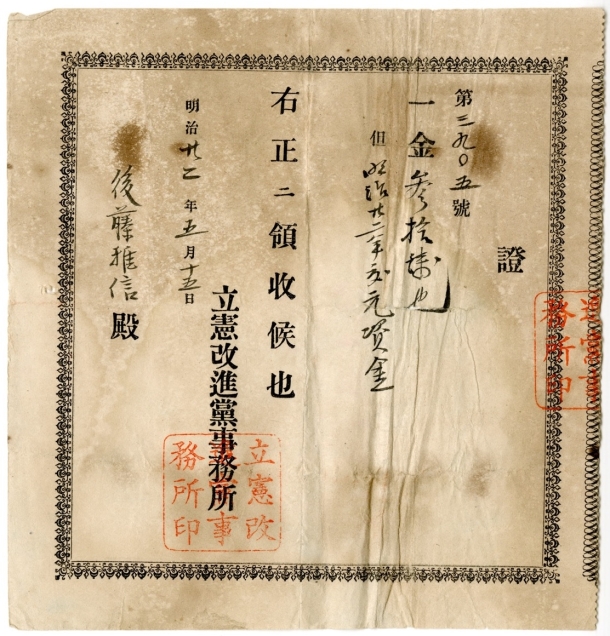 證
第三九〇五號
一金參拾錢也
但明治廿二年度党資金
右正ニ領收候也
明治廿二年五月十五日
立憲改進黨事務所
立憲改
進黨事
務所印
後藤雅信殿
進黨事
務所印